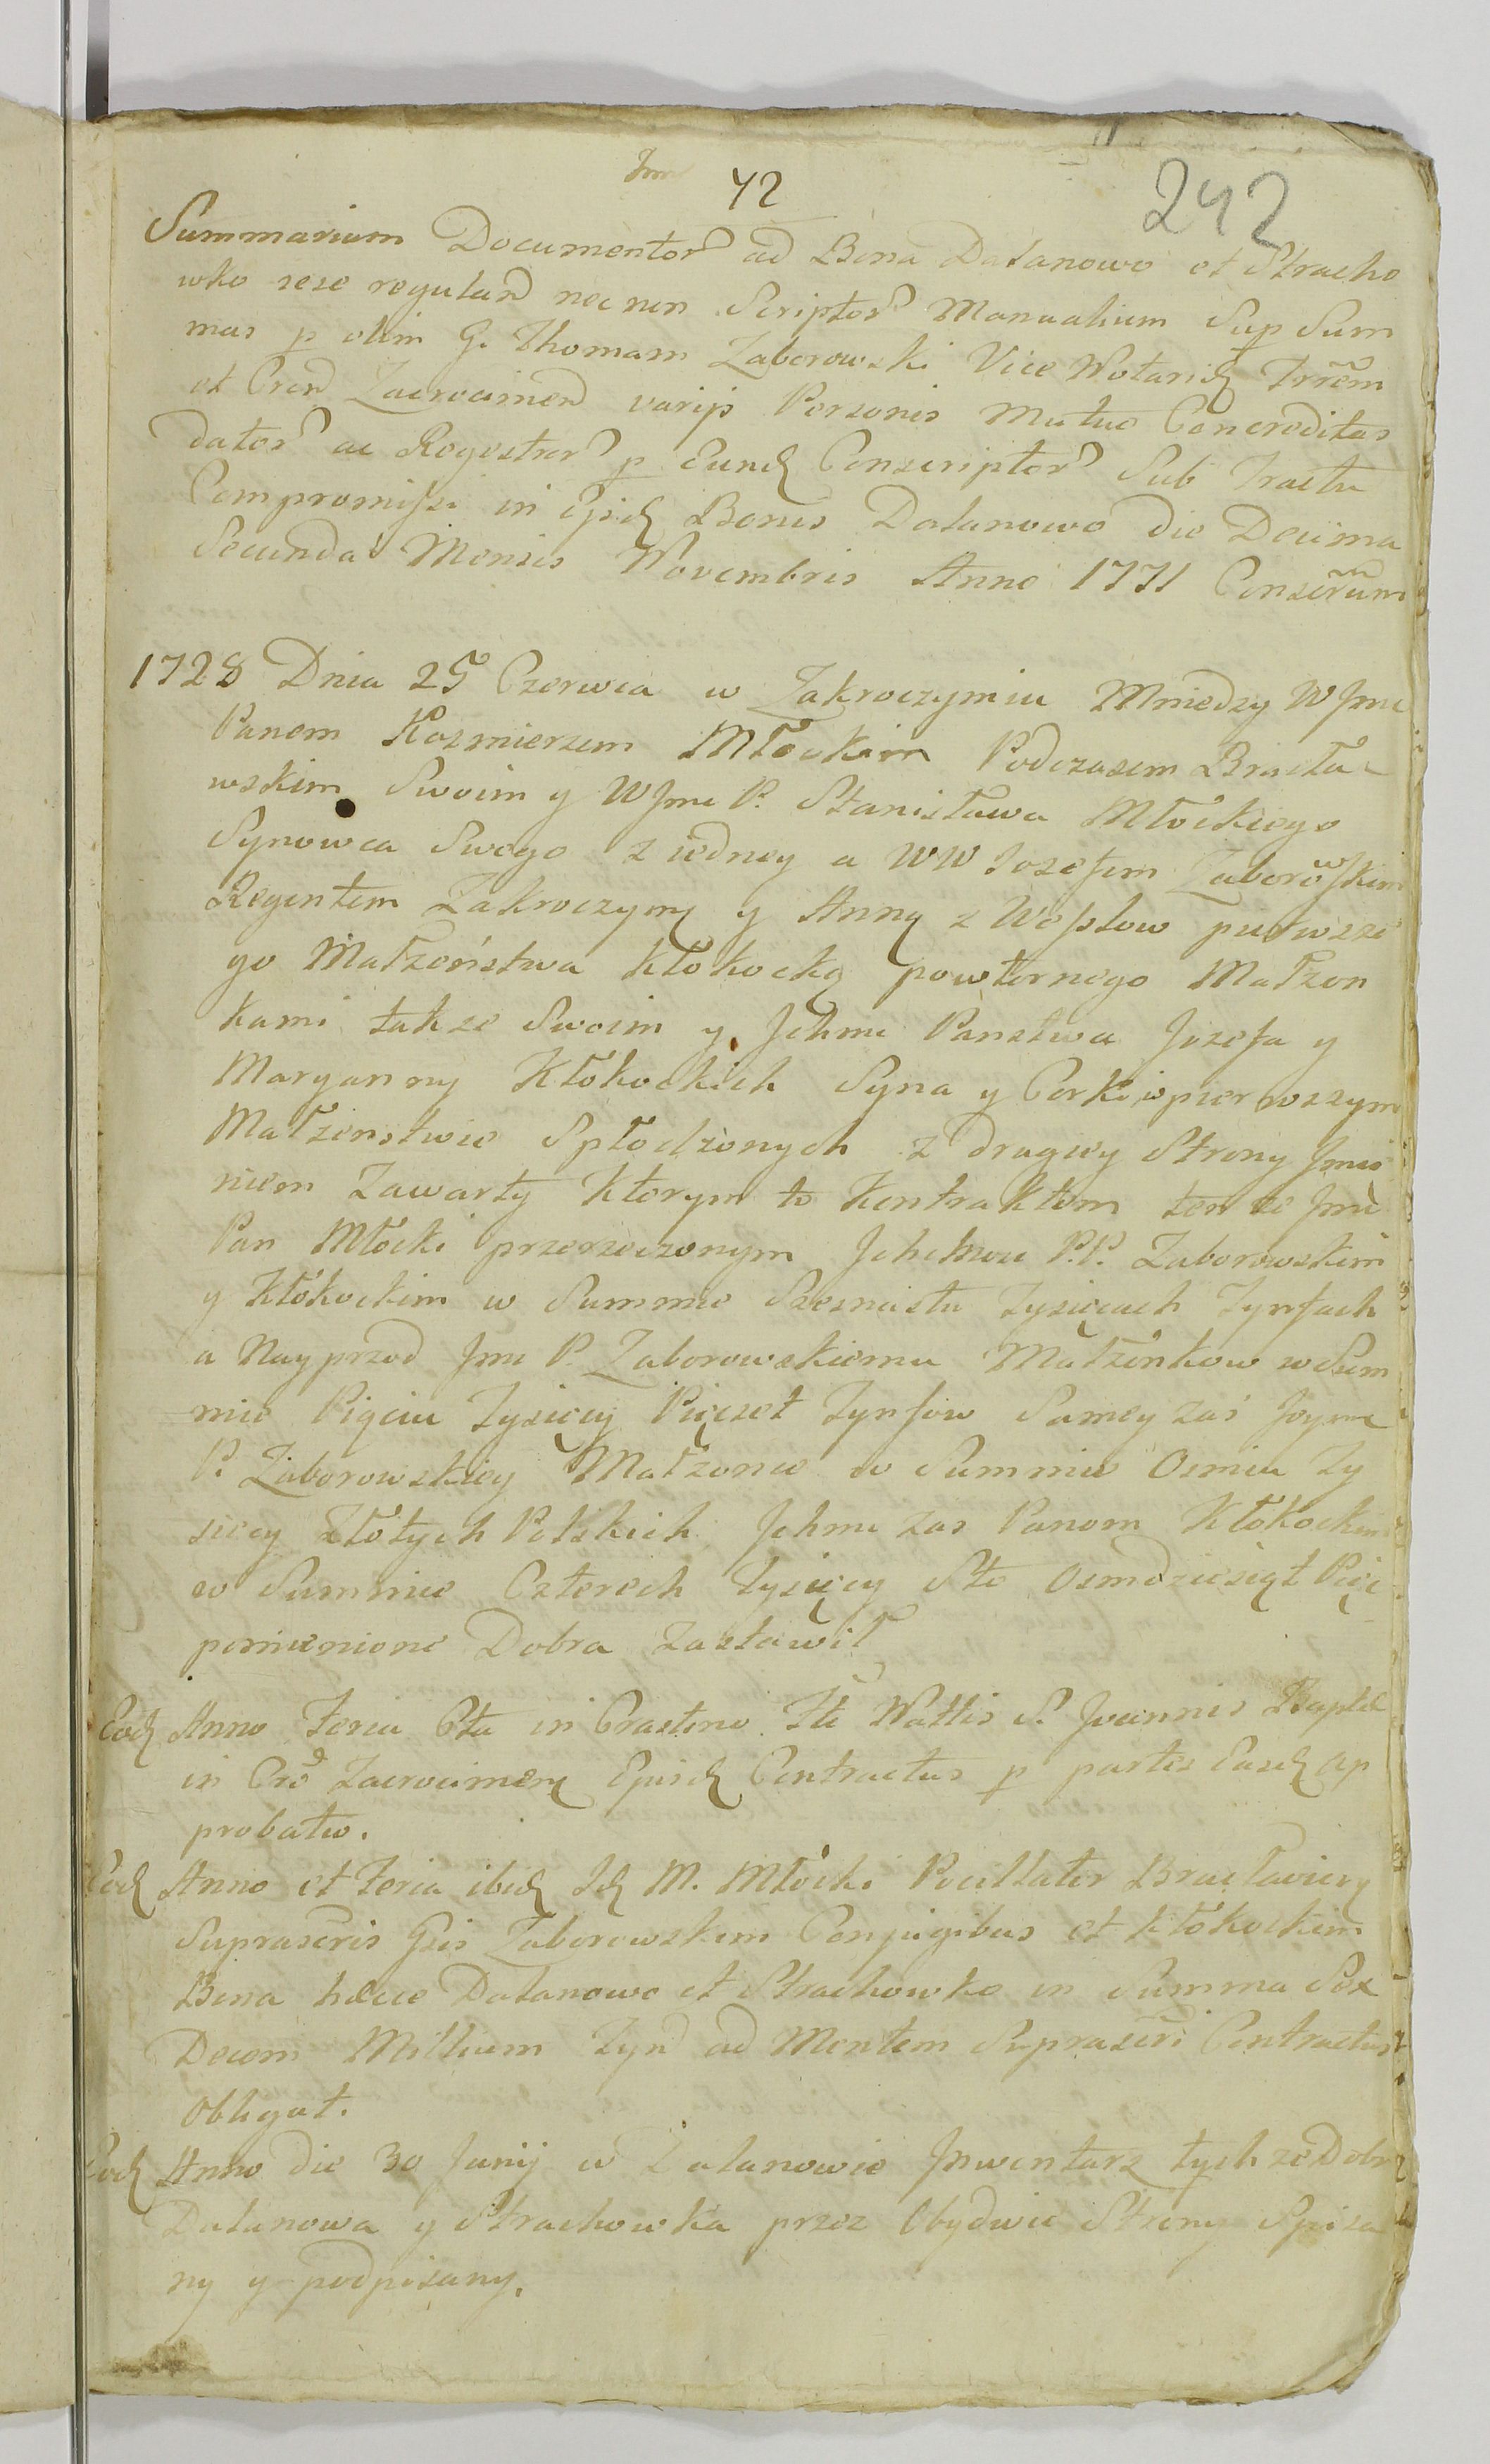 42
242
Summarium Documentor ad Bona Dalanowo et Stracho
wko sese reguland nec non Scriptor Manualium Sup Sum
mas p olim G. Thomam Zaborowski Vice Notariũ Trrem
et Cren Zacrocimen varijs Personis Mutuo Concreditas
dator ac Regestror p Eund Conscriptor Sub Tractu
Compromissi in Ijsd Bonis Dalanowo die Decima
Secunda Mensis Novembris Anno 1771 Conscrum
1728 Dnia 25 Czerwca w Zakroczymiu Mniedzy WJmc
Panem Kazmierzem Młockim Podczasem Bracła
wskim Swoim y WJmc P. Stanisława Młockiego
Synowca Swego z iedney a WW Jozefem Zaborowskim
Regentem Zakroczym y Anną z Wessłow pierwsze
go Małzeństwa Kłokocką powtornego Małzon
kami takze Swoim y Jchmc Panstwa Jozefa y
Maryanny Kłokockich Syna y Corki w pierwszym
Małzenstwie Spłodzonych z drugiey Strony Jmie
niem Zawarty Ktorym to Kontraktem ten ze Jmc
Pan Młocki przerzeczonym Jchchmciu P.P. Zaborowskim
y Kłokockim w Summie Szesnastu Tysięcach Tynfach
a Nayprzod Jmc P. Zaborowskiemu Małzonkow w Sum
mie Pięciu Tysięcy Pięcset Tynfow Samey zaś Jeymc
P. Zaborowskiey Małzonce w Summie Osmiu Ty
siecy Złotych Polskich Jchmc zas Panom Kłokockim
w Summie Czterech Tysięcy Sto Osmdziesiąt Pięc
pomienione Dobra Zastawił
Eod Anno Feria 6ta in Crastino Fti Nattis S. Joannis Baptae
in Cro Zacrocimen Ejusd Contractus p partes Easd Ap
probatio.
Eod Anno et Feria ibid Id M. Młocki Pocillator Bracłavien
Suprascris Gsis Zaborowskim Conjugibus et Kłokockim
Bona hæcce Dalanowo et Strachowko in Summa Sex
Decem Millium Tyn ad Mentem Suprascri Contractus
Obligat.
Eod Anno die 30 Junij w Dalanowie Jnwentarz tychze Dobr
Dalanowa y Strachowka przez Obydwie Strony Spisa
ny y podpisany.